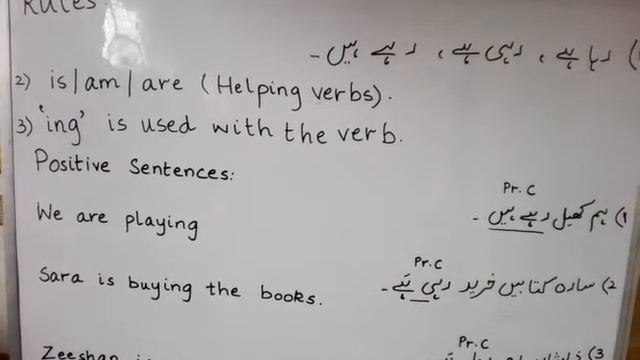 Rules
1) رہا ہے ، رہی ہے ، رہے ہیں -
2) is/am/are (Helping verbs).
3) 'ing' is used with the verb.
Positive Sentences:
Pr. C
We are playing
1) ہم کھیل رہے ہیں -
Pr. C
Sara is buying the books.
2) سارہ کتابیں خرید رہی ہے -
Pr. C
Zeeshan is
3)